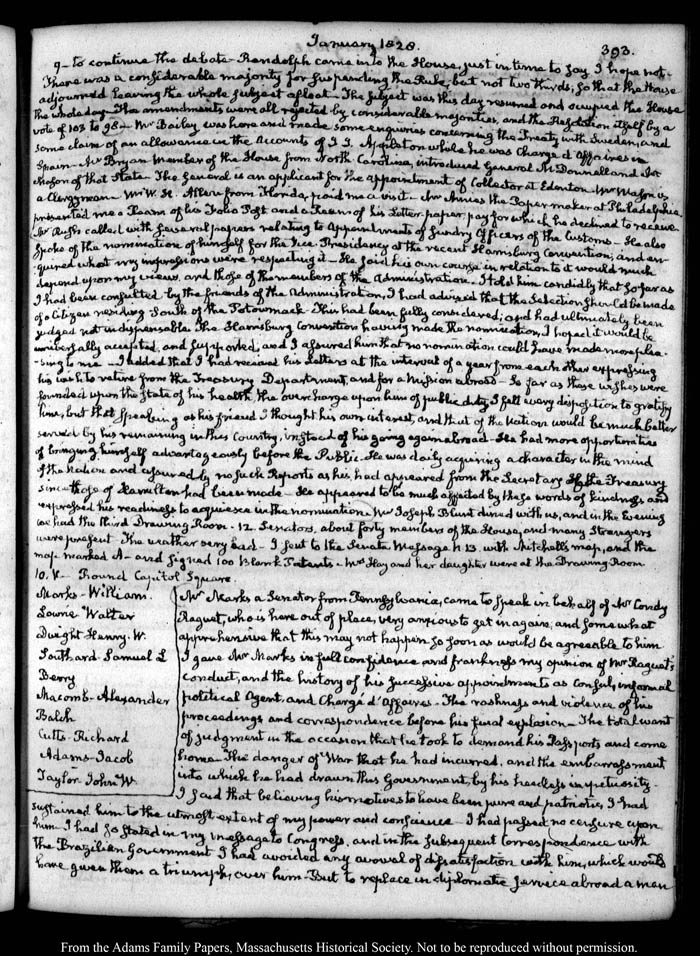 January 1828.
393.
9— to continue the debate— Randolph came into the House, just in time to say I hope not.
There was a considerable majority for suspending the Rule, but not two thirds, so that the House
adjourned leaving the whole subject afloat— The subject was this day resumed and occupied the House
the whole day— The amendments were all rejected by considerable majorities, and the Resolution itself by a
vote of 103 to 98— Mr Bailey was here and made some enquiries concerning the Treaty with Sweden, and
some claim of an allowance in the Accounts of J. J. Appleton while he was Chargé d'Affaires in
Spain— Mr Bryan Member of the House from North Carolina, introduced General McDonnell and
Mason of that State— The General is an applicant for the appointment of Collector at Edenton. Mr Mason is
a Clergyman— Mr W. H. Allen from Florida, paid me a visit— Mr Ames the Paper maker at Philadelphia
presented me a Ream of his Folio Post and a Ream of his Letter paper, pay for which he declined to receive
Mr Rush called with several papers relating to Appointments of sundry Officers of the Customs— He also
spoke of the nomination of himself for the Vice-Presidency at the recent Harrisburg Convention; and en-
quired what my impressions were respecting it— He said his own course in relation to it would much
depend upon my views, and those of the members of the Administration. I told him candidly that so far as
I had been consulted by the friends of the Administration, I had advised that the selection should be made
of a Citizen residing South of the Potowmack— This had been fully considered; and had ultimately been
judged not indispensable. The Harrisburg Convention having made the nomination, I hoped it would be
universally accepted, and supported; and I assured him that no nomination could have made more plea-
-sing to me— I added that I had received his Letters at the interval of a year from each other expressing
his wish to retire from the Treasury Department, and for a Mission abroad— So far as those wishes were
founded upon the state of his health, the overcharge upon him of public duty I felt every disposition to gratify
him; but that speaking as his friend I thought his own interest, and that of the Nation would be much better
served by his remaining in this Country, instead of his going again abroad— He had more opportunities
of bringing himself advantageously before the Public. He was daily acquiring a character in the mind
of the Nation and assured by no such Reports as his, had appeared from the Secretary of the Treasury
since those of Hamilton had been made— He appeared to be much affected by these words of kindness and
expressed his readiness to acquiesce in the nomination. Mr Joseph Blunt dined with us, and in the Evening
we had the third Drawing Room. 12 Senators, about forty members of the House, and many Strangers
were present. The weather very bad— I sent to the Senate Message N 13. with Mitchell's map, and the
map marked A— and signed 100 Blank Patents— Mrs Hay and her daughter were at the Drawing Room
10. V— Round Capitol Square.
Marks— William.
Lowrie Walter
Dwight Henry. W.
Southard Samuel L
Berry
Macomb— Alexander
Balch
Cutts— Richard
Adams— Jacob
Taylor John W.
Mr Marks a Senator from Pennsylvania, came to speak in behalf of Mr Condy
Raguet, who is here out of place, very anxious to get in again, and somewhat
apprehensive that this may not happen so soon as would be agreeable to him
I gave Mr Marks in full confidence and frankness my opinion of Mr Raguet's
conduct, and the history of his successive appointments as Consul, informal
political Agent, and Chargé d'Affaires— The rashness and violence of his
proceedings and correspondence before his final explosion— The total want
of judgment in the occasion that he took to demand his Passports and come
home— The danger of War that he had incurred, and the embarrassment
into which he had drawn this Government, by his heedless impetuosity.
I said that believing his motives to have been pure and patriotic, I had
sustained him to the utmost extent of my power and conscience— I had passed no censure upon
him— I had so stated in my message to Congress, and in the subsequent Correspondence with
the Brazilian Government I had avoided any avowal of dissatisfaction with him, which would
have given them a triumph, over him— But to replace in diplomatic service abroad a man
From the Adams Family Papers, Massachusetts Historical Society. Not to be reproduced without permission.